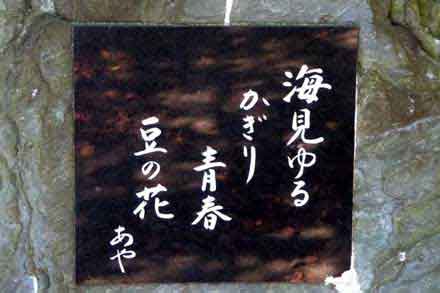 海見ゆる
かぎり
青春
豆の花
あや